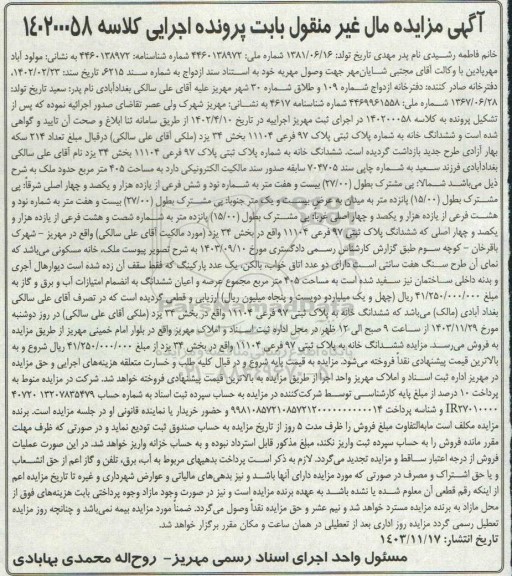 آگهی مزایده مال غیر منقول بابت پرونده اجرایی کلاسه ۱۴۰۲۰۰۰۵۸
خانم فاطمه رشیدی نام پدر مهدی تاریخ تولد: ۱۳۸۱/۰۶/۱۶ شماره ملی: ۴۴۶۰۱۳۸۹۷۲ شماره شناسنامه: ۴۴۶۰۱۳۸۹۷۲ به نشانی: مولود آباد
مهرپادین با وکالت آقای مجتبی شایان‌مهر جهت وصول مهریه خود به استناد سند ازدواج به شماره سند ۶۲۱۵، تاریخ سند: ۱۴۰۲/۰۲/۲۳،
دفترخانه صادر کننده: دفترخانه ازدواج شماره ۱۰۹ و طلاق شماره ۳۰ شهر مهریز علیه آقای علی سالکی بغدادآبادی نام پدر: سعید تاریخ تولد:
۱۳۶۷/۰۶/۲۸ شماره ملی: ۴۴۶۹۹۶۱۵۵۸ شماره شناسنامه ۴۶۱۷ به نشانی: مهریز شهرک ولی عصر تقاضای صدور اجرائیه نموده که پس از
تشکیل پرونده به کلاسه ۱۴۰۲۰۰۰۵۸ در اجرای ثبت مهریز اجراییه در تاریخ ۱۴۰۲/۴/۱۰ از طریق سامانه ثنا ابلاغ و صحت آن تایید و گواهی
شده است و ششدانگ خانه به شماره پلاک ثبتی پلاک ۹۷ فرعی ۱۱۱۰۴ بخش ۳۴ یزد (ملکی آقای علی سالکی) درقبال مبلغ تعداد ۲۱۴ سکه
بهار آزادی طرح جدید بازداشت گردیده است. ششدانگ خانه به شماره پلاک ثبتی پلاک ۹۷ فرعی ۱۱۱۰۴ بخش ۳۴ یزد نام آقای علی سالکی
بغدادآبادی فرزند سعید به شماره چاپی سند ۷۰۴۷۰۵ سابقه صدور سند مالکیت الکترونیکی دارد به مساحت ۴۰۵ متر مربع حدود ملک به شرح
ذیل می‌باشد شمالا: پی مشترک بطول (۲۷/۰۰) بیست و هفت متر به شماره نود و شش فرعی از یازده هزار و یکصد و چهار اصلی شرقا: پی
مشترک بطول (۱۵/۰۰) پانزده متر به میدان به عرض بیست و یک متر جنوبا: پی مشترک بطول (۲۷/۰۰) بیست و هفت متر به شماره نود و
هشت فرعی از یازده هزار و یکصد و چهار اصلی غربا: پی مشترک بطول (۱۵/۰۰) پانزده متر به شماره شصت و هشت فرعی از یازده هزار و
یکصد و چهار اصلی که ششدانگ پلاک ثبتی ۹۷ فرعی ۱۱۱۰۴ واقع در بخش ۳۴ یزد (مورد مالکیت آقای علی سالکی) واقع در مهریز – شهرک
باقرخان – کوچه سوم طبق گزارش کارشناس رسمی دادگستری مورخ ۱۴۰۳/۰۹/۱۰ به شرح تصویر پیوست ملک، خانه مسکونی می‌باشد که
نمای آن طرح سنگ هفت سانتی است و دارای دو عدد اتاق خواب، بالکن، یک عدد پارکینگ که فقط سقف آن زده شده است دیوارهال آجری
و بدنه داخلی ساختمان نیز سفید شده است به مساحت ۴۰۵ متر مربع مجموع عرصه و اعیان ششدانگ به انضمام امتیازات آب و برق و گاز به
مبلغ ۴۱/۲۵۰/۰۰۰/۰۰۰ ریال (چهل و یک میلیاردو دویست و پنجاه میلیون ریال) ارزیابی و قطعی گردیده است که در تصرف آقای علی سالکی
بغداد آبادی (مالک) می‌باشد که ششدانگ خانه به پلاک ثبتی ۹۷ فرعی ۱۱۱۰۴ واقع در بخش ۳۴ یزد (ملکی آقای علی سالکی) در روز دوشنبه
مورخ ۱۴۰۳/۱۱/۲۹ از ساعت ۹ صبح الی ۱۲ ظهر در محل اداره ثبت اسناد و املاک مهریز واقع در بلوار امام خمینی مهریز از طریق مزایده
به فروش می‌رسد. مزایده ششدانگ خانه به پلاک ثبتی ۹۷ فرعی ۱۱۱۰۴ واقع در بخش ۳۴ یزد از مبلغ ۴۱/۲۵۰/۰۰۰/۰۰۰ ریال شروع و به
بالاترین قیمت پیشنهادی نقداً فروخته می‌شود. مزایده به قیمت پایه شروع و در قبال کل طلب و خسارت متعلقه هزینه‌های اجرایی و حق مزایده
در مهریز اداره ثبت اسناد و املاک مهریز واحد اجرا از طریق مزایده به بالاترین قیمت پیشنهادی فروخته خواهد شد. شرکت در مزایده منوط به
پرداخت ۱۰ درصد از مبلغ پایه کارشناسی توسط شرکت‌کننده در مزایده به حساب سپرده ثبت اسناد به شماره حساب ۴۰۷۲۰ ۱۳۲۰۷۸۳۵۴۷۹
IR۲۷۰۱۰۰۰۰ و شناسه پرداخت ۹۹۸۱۰۸۵۷۲۱۰۸۵۷۲۱۲۰۰۰۰۰۰۰۰۰۰۰۱۴ و حضور خریدار یا نماینده قانونی او در جلسه مزایده است. برنده
مزایده مکلف است مابه‌التفاوت مبلغ فروش را ظرف مدت ۵ روز از تاریخ مزایده به حساب صندوق ثبت تودیع نماید و در صورتی که ظرف مهلت
مقرر مانده فروش را به حساب سپرده ثبت واریز نکند، مبلغ مذکور قابل استرداد نبوده و به حساب خزانه واریز خواهد شد. در این صورت عملیات
فروش از درجه اعتبار ساقط و مزایده تجدید می‌گردد. لازم به ذکر است پرداخت بدهیهای مربوط به آب، برق، تلفن و گاز اعم از حق انشعاب
و یا حق اشتراک و مصرف در صورتی که مورد مزایده دارای آنها باشد و نیز بدهی‌های مالیاتی و عوارض شهرداری و غیره تا تاریخ مزایده اعم
از اینکه رقم قطعی آن معلوم شده یا نشده باشد به عهده برنده مزایده است و نیز در صورت وجود مازاد وجوه پرداختی بابت هزینه‌های فوق از
محل مازاد به برنده مزایده مسترد خواهد شد و نیم عشر و حق مزایده نقداً وصول می‌گردد. ضمناً مورد مزایده بیمه نمی‌باشد و چنانچه روز مزایده
تعطیل رسمی گردد مزایده روز اداری بعد از تعطیلی در همان ساعت و مکان مقرر برگزار خواهد شد.
تاریخ انتشار: ۱۴۰۳/۱۱/۱۷
مسئول واحد اجرای اسناد رسمی مهریز– روح‌اله محمدی بهابادی